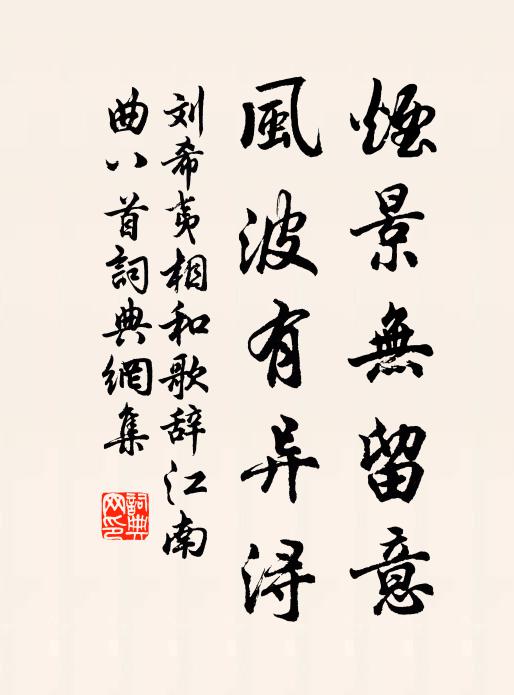 煙景無留意
風波有异浔
刘希夷相和歌辞江南
曲八首詞典網集
詞典网印